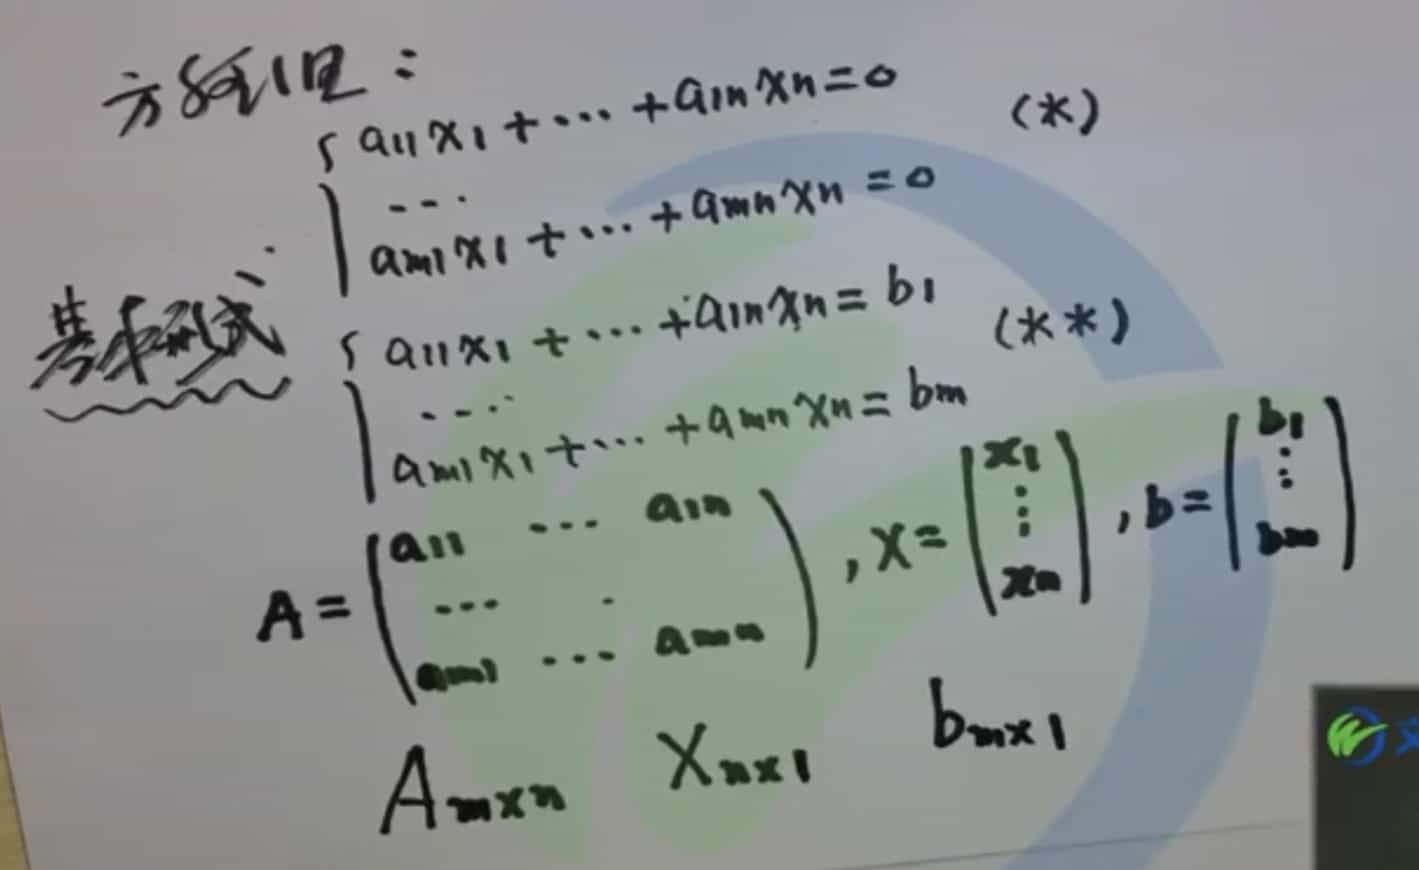 方程组:
a11x1+···+a1nxn=0 (*)
···
am1x1+···+amnxn=0
基本形式
a11x1+···+a1nxn=b1 (**)
···
am1x1+···+amnxn=bm
A=(a11 ··· a1n
···
am1 ··· amn), X=(x1 ⋮ xn), b=(b1 ⋮ bm)
Am×n Xn×1 bm×1